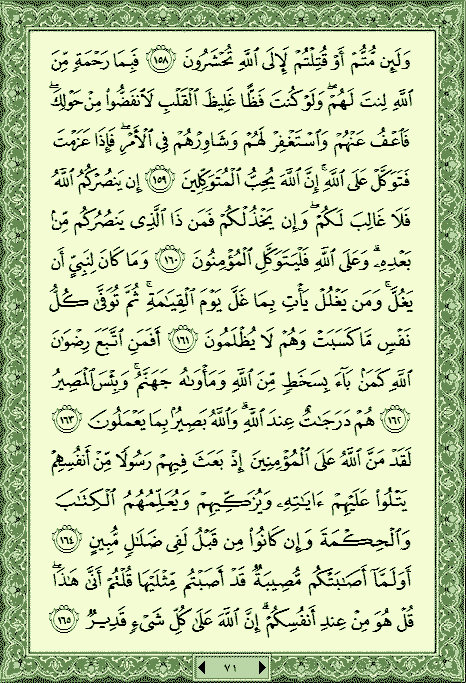 وَلَئِن مُّتُّمْ أَوْ قُتِلْتُمْ لَإِلَى ٱللَّهِ تُحْشَرُونَ ١٥٨ فَبِمَا رَحْمَةٍ مِّنَ
ٱللَّهِ لِنتَ لَهُمْ ۖ وَلَوْ كُنتَ فَظًّا غَلِيظَ ٱلْقَلْبِ لَٱنفَضُّوا۟ مِنْ حَوْلِكَ ۖ
فَٱعْفُ عَنْهُمْ وَٱسْتَغْفِرْ لَهُمْ وَشَاوِرْهُمْ فِى ٱلْأَمْرِ ۖ فَإِذَا عَزَمْتَ
فَتَوَكَّلْ عَلَى ٱللَّهِ ۚ إِنَّ ٱللَّهَ يُحِبُّ ٱلْمُتَوَكِّلِينَ ١٥٩ إِن يَنصُرْكُمُ ٱللَّهُ
فَلَا غَالِبَ لَكُمْ ۖ وَإِن يَخْذُلْكُمْ فَمَن ذَا ٱلَّذِى يَنصُرُكُم مِّنۢ
بَعْدِهِۦ ۗ وَعَلَى ٱللَّهِ فَلْيَتَوَكَّلِ ٱلْمُؤْمِنُونَ ١٦٠ وَمَا كَانَ لِنَبِىٍّ أَن
يَغُلَّ ۚ وَمَن يَغْلُلْ يَأْتِ بِمَا غَلَّ يَوْمَ ٱلْقِيَٰمَةِ ۚ ثُمَّ تُوَفَّىٰ كُلُّ
نَفْسٍ مَّا كَسَبَتْ وَهُمْ لَا يُظْلَمُونَ ١٦١ أَفَمَنِ ٱتَّبَعَ رِضْوَٰنَ
ٱللَّهِ كَمَنۢ بَآءَ بِسَخَطٍ مِّنَ ٱللَّهِ وَمَأْوَىٰهُ جَهَنَّمُ ۚ وَبِئْسَ ٱلْمَصِيرُ
١٦٢ هُمْ دَرَجَٰتٌ عِندَ ٱللَّهِ ۗ وَٱللَّهُ بَصِيرٌۢ بِمَا يَعْمَلُونَ ١٦٣
لَقَدْ مَنَّ ٱللَّهُ عَلَى ٱلْمُؤْمِنِينَ إِذْ بَعَثَ فِيهِمْ رَسُولًا مِّنْ أَنفُسِهِمْ
يَتْلُوا۟ عَلَيْهِمْ ءَايَٰتِهِۦ وَيُزَكِّيهِمْ وَيُعَلِّمُهُمُ ٱلْكِتَٰبَ
وَٱلْحِكْمَةَ وَإِن كَانُوا۟ مِن قَبْلُ لَفِى ضَلَٰلٍ مُّبِينٍ ١٦٤
أَوَلَمَّآ أَصَٰبَتْكُم مُّصِيبَةٌ قَدْ أَصَبْتُم مِّثْلَيْهَا قُلْتُمْ أَنَّىٰ هَٰذَا ۖ
قُلْ هُوَ مِنْ عِندِ أَنفُسِكُمْ ۗ إِنَّ ٱللَّهَ عَلَىٰ كُلِّ شَىْءٍ قَدِيرٌ ١٦٥
٧١